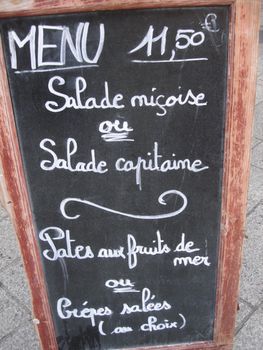 MENU 11,50 €
Salade niçoise
ou
Salade capitaine
Pates aux fruits de
mer
ou
Crêpes salées
(au choix)